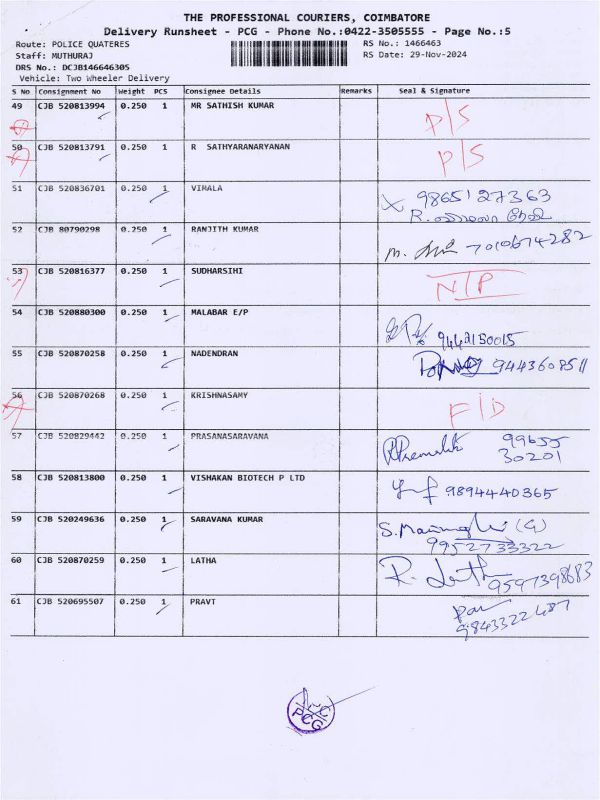 THE PROFESSIONAL COURIERS, COIMBATORE
Delivery Runsheet - PCG - Phone No.:0422-3505555 - Page No.:5
Route: POLICE QUATERES RS No.: 1466463
Staff: MUTHURAJ RS Date: 29-Nov-2024
DRS No.: DCJB146646305
Vehicle: Two Wheeler Delivery
S No Consignment No Weight PCS Consignee Details Remarks Seal & Signature
49 CJB 520813994 0.250 1 MR SATHISH KUMAR P/S
50 CJB 520813791 0.250 1 R SATHYARANARYANAN P/S
51 CJB 520836701 0.250 1 VIMALA 9865127363
R.
52 CJB 80790298 0.250 1 RANJITH KUMAR m. 7010674282
53 CJB 520816377 0.250 1 SUDHARSIHI N/P
54 CJB 520880300 0.250 1 MALABAR E/P 9442150015
55 CJB 520870258 0.250 1 NADENDRAN 9443608511
56 CJB 520870268 0.250 1 KRISHNASAMY F/D
57 CJB 520829442 0.250 1 PRASANASARAVANA 99655
30201
58 CJB 520813800 0.250 1 VISHAKAN BIOTECH P LTD 9894440365
59 CJB 520249636 0.250 1 SARAVANA KUMAR S. (G)
9952733322
60 CJB 520870259 0.250 1 LATHA R. Latha 9597398683
61 CJB 520695507 0.250 1 PRAVT
9843322487
PCG